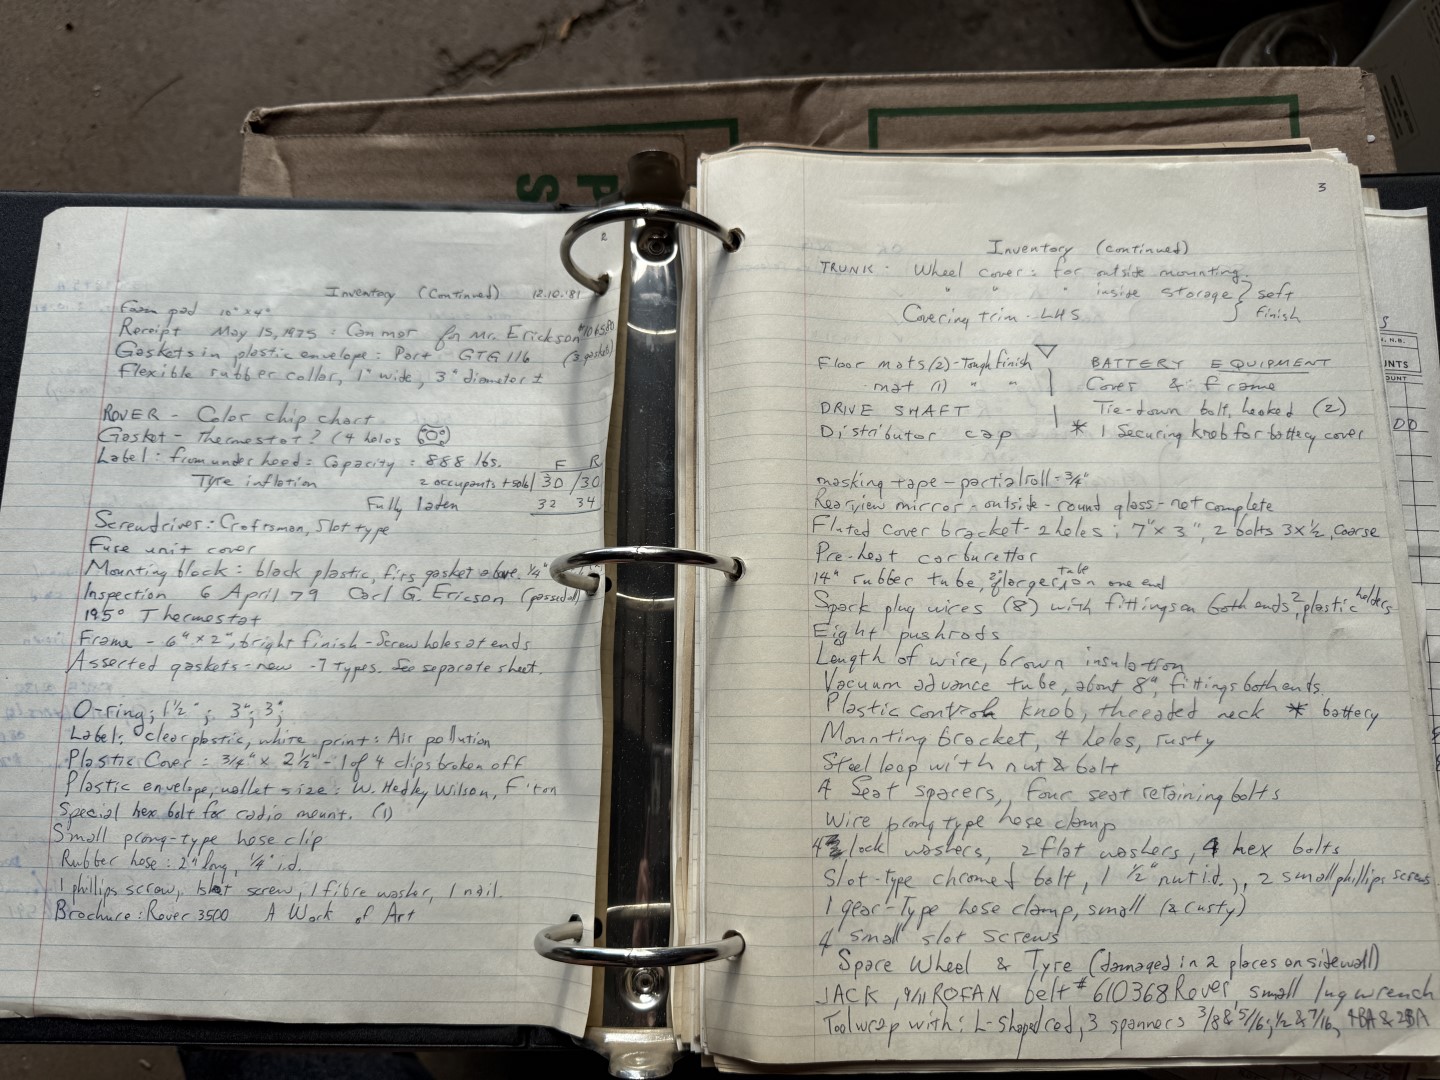 2
Inventory (Continued) 12.10.'81
Foam pad 10" x 4"
Receipt May 15, 1975 : Can mor for Mr. Erickson
Gaskets in plastic envelope : Part GTG 116 (3 gaskets)
Flexible rubber collar, 1" wide, 3" diameter ±
ROVER - Color chip chart
Gasket - Thermostat? (4 holes
Label : from under hood : Capacity : 888 lbs.
F R
Tyre inflation 2 occupants + solo 30 / 30
Fully laden 32 34
Screwdriver : Craftsman, Slot type
Fuse unit cover
Mounting block : black plastic, fits gasket above. 1/4"
Inspection 6 April 79 Carl G. Ericson (passed)
195° Thermostat
Frame - 6" x 2", bright finish - Screw holes at ends
Assorted gaskets - new - 7 types. See separate sheet.
O-ring; 1 1/2"; 3"; 3";
Label: clear plastic, white print : Air pollution
Plastic Cover : 3/4" x 2 1/2" - 1 of 4 clips broken off
Plastic envelope, wallet size : W. Hedley Wilson,
Special hex bolt for radio mount. (1)
Small prong-type hose clip
Rubber hose : 2" long, 1/4" i.d.
1 phillips screw, 1 slot screw, 1 fibre washer, 1 nail.
Brochure : Rover 3500 A Work of Art
3
Inventory (continued)
TRUNK - Wheel cover : for outside mounting.
" " " inside storage } soft
Covering trim - LHS finish
Floor mats (2) - Tough finish
mat (1) " "
DRIVE SHAFT
Distributor cap
BATTERY EQUIPMENT
Cover & frame
Tie-down bolt, hooked (2)
* 1 Securing knob for battery cover
masking tape - partial roll - 3/4"
Rearview mirror - outside - round glass - not complete
Fluted cover bracket - 2 holes ; 7" x 3", 2 bolts 3 x 1/2, coarse
Pre-heat carburettor
14" rubber tube, larger tube on one end
Spark plug wires (8) with fittings on both ends, 2 plastic holders
Eight pushrods
Length of wire, brown insulation
Vacuum advance tube, about 8", fittings both ends
Plastic control knob, threaded neck * battery
Mounting bracket, 4 holes, rusty
Steel loop with nut & bolt
4 Seat spacers, four seat retaining bolts
Wire prong type hose clamp
4 lock washers, 2 flat washers, 4 hex bolts
Slot-type chromed bolt, 1 1/2" nut i.d., 2 small phillips screws
1 gear-Type hose clamp, small (& rusty)
4 small slot screws
Space Wheel & Tyre (damaged in 2 places on sidewall)
JACK, ROFAN belt # 610368 Rover, small lug wrench
Toolwrap with : L-shaped rod, 3 spanners 3/8 & 5/16; 1/2 & 7/16, 4BA & 2BA